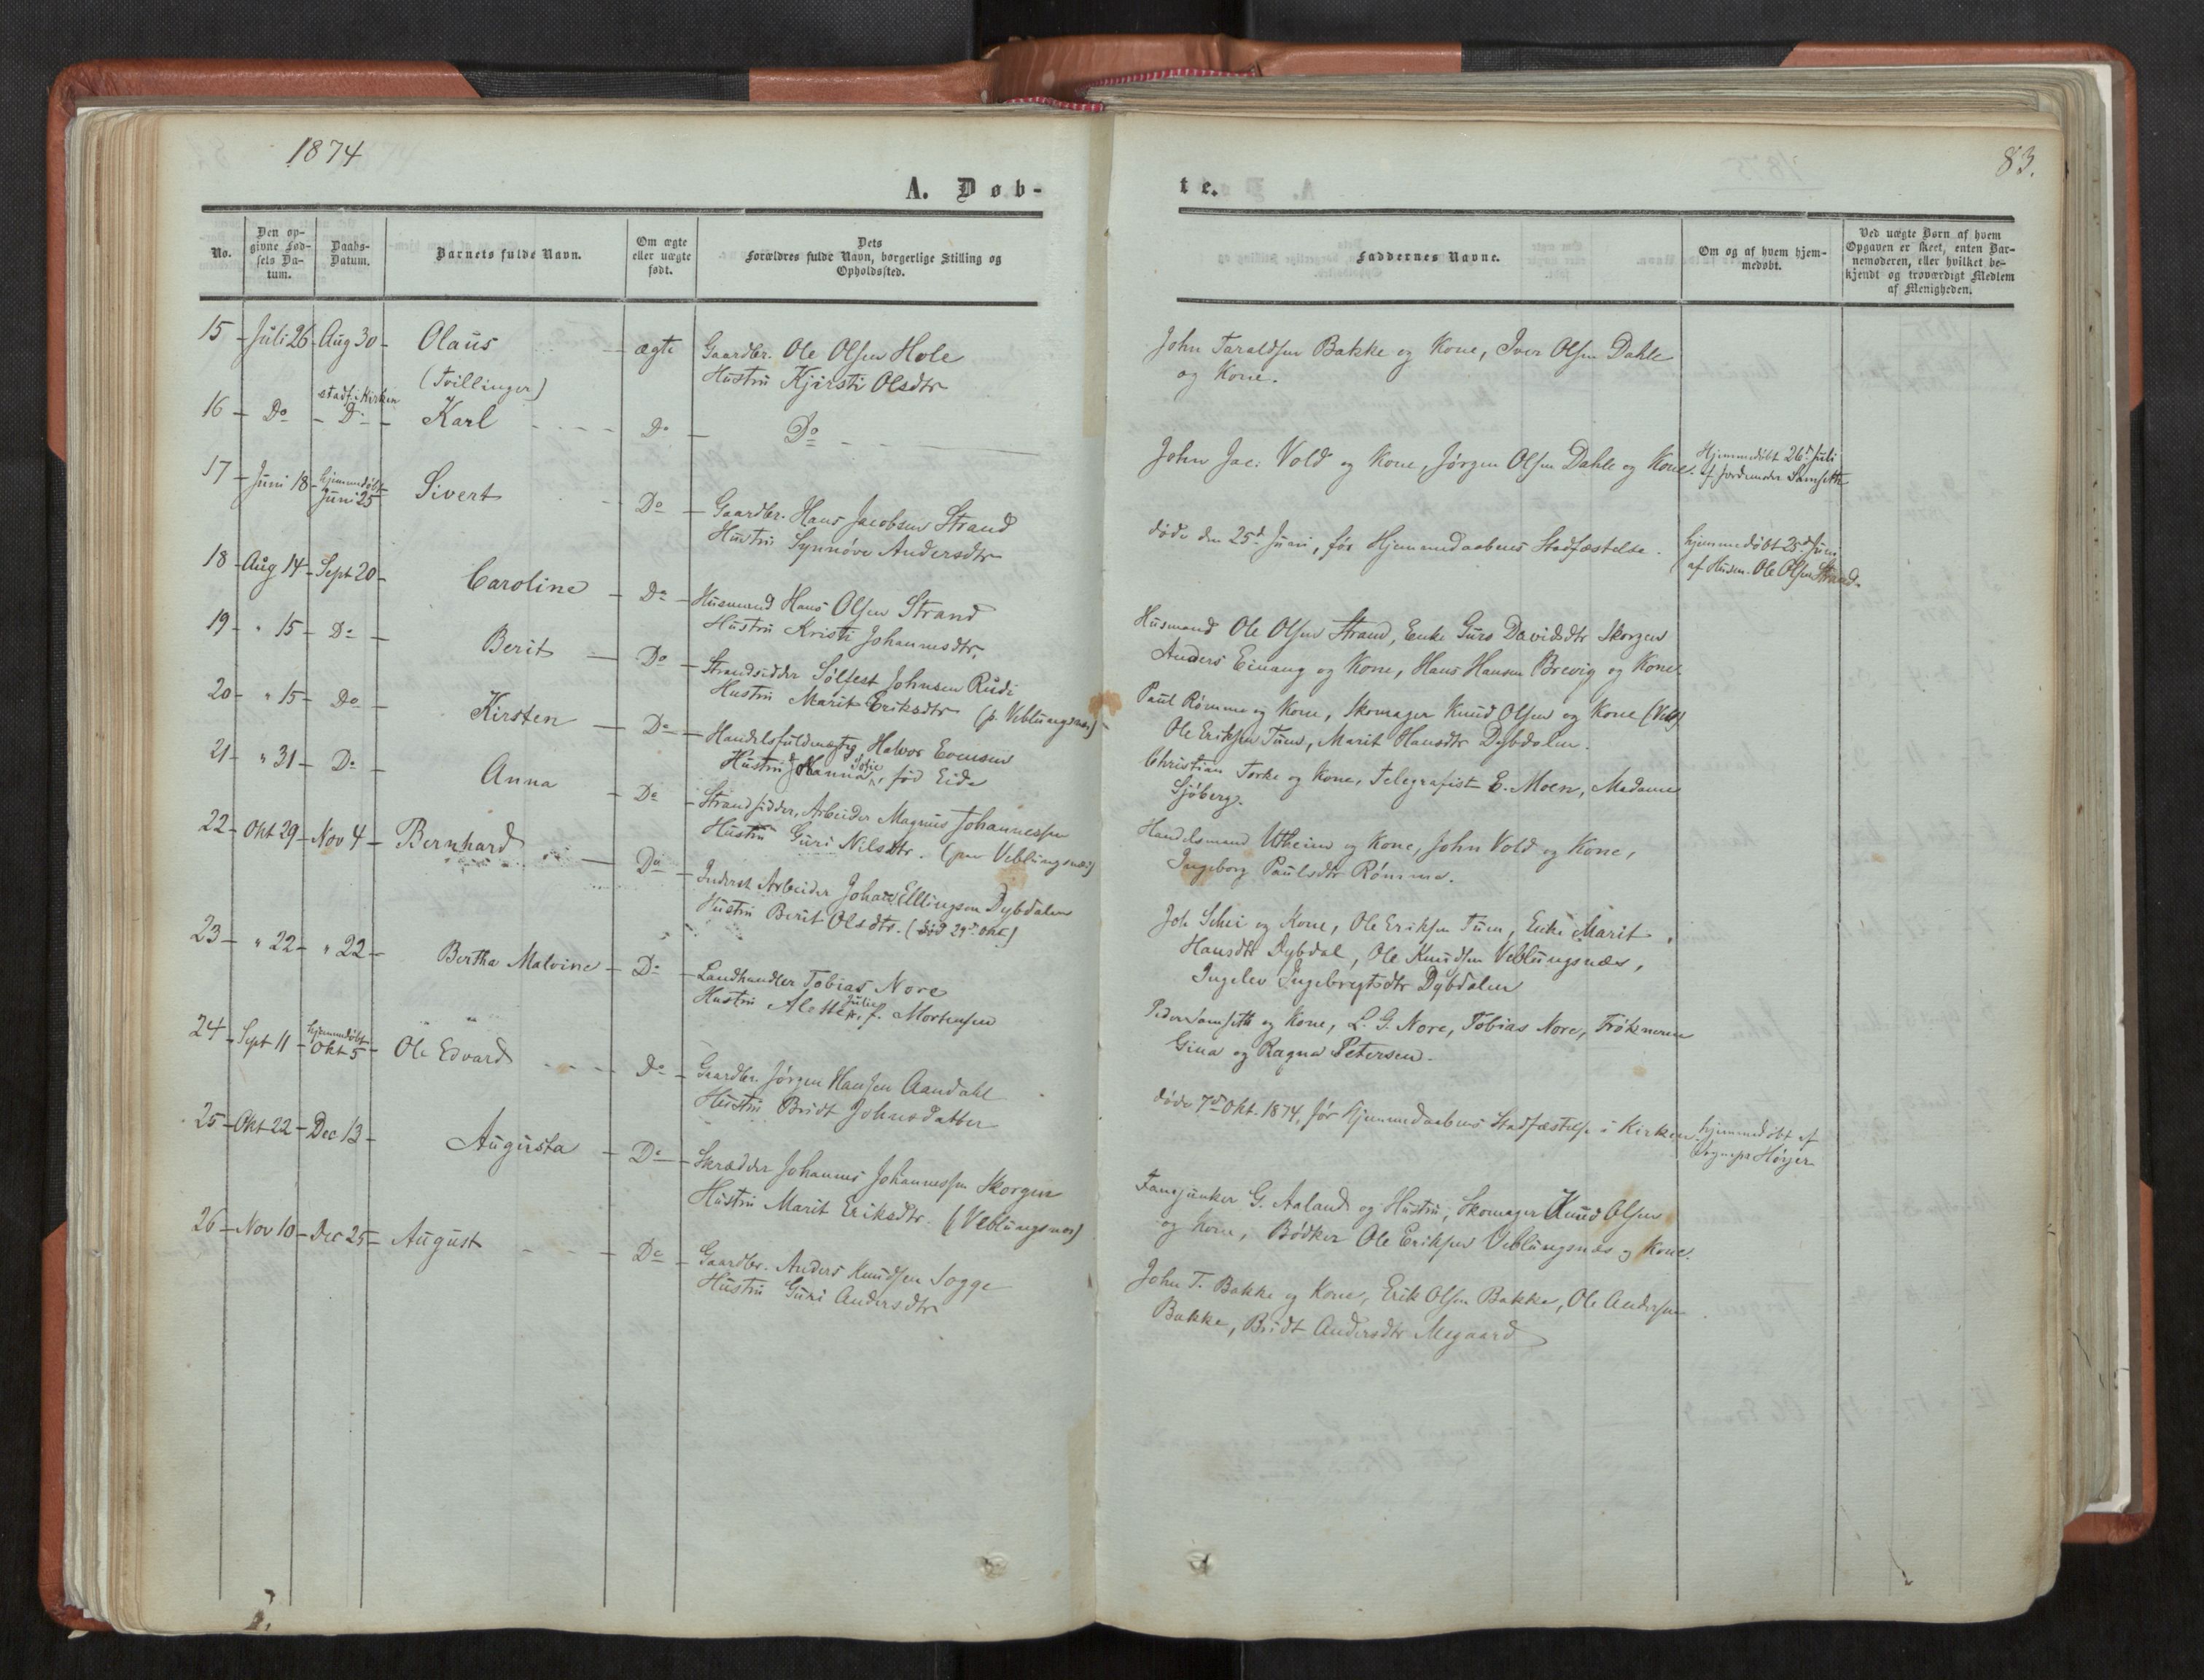 1874
A. Døb-
No.
Den op-
givne Fød-
sels Da-
tum.
Daabs-
Datum.
Barnets fulde Navn.
Om ægte
eller uægte
født.
Dets
Forældres fulde Navn, borgerlige Stilling og
Opholdssted.
15 - Juli 26 - Aug 30 - Olaus - ægte Gaardbr. Ole Olsen Hole
Hustru Kjirsti Olsdtr
(Tvillinger)
stadf. i Kirken
16 - Do - Do - Karl - Do - Do
17 - Juni 18 - hjemmedøbt
Juni 25 Sivert - Do - Gaardbr. Hans Jacobsen Strand
Hustru Synnøve Andersdtr
18 - Aug 14 - Sept 20 - Caroline - Do - Husmand Hans Olsen Strand
Hustru Kristi Johannesdtr,
19 - " 15 - Do - Berit - Do - Strandsidder Sølfest Johnsen Rudi
Hustru Marit Eriksdtr (p. Veblungsnes)
20 - " 15 - Do - Kirsten - Do - Handelsfuldmægtig Halvor Evensen
Hustru Johanna Sofie, fød Eide
21 - " 31 - Do - Anna - Do - Strandsidder, Arbeider Magnus Johannessen
Hustru Guri Nilsdtr. (paa Veblungsnes)
22 - Okt 29 - Nov 4 - Bernhard - Do - Inderst Arbeider Johan Ellingsen Dybdalen
Hustru Berit Olsdtr. (død 29de Okt)
23 - " 22 - " 22 - Bertha Malvine - Do - Landhandler Tobias Nore
Hustru Alette Julie, f. Mortensen
24 - Sept 11 - hjemmedøbt
Okt 5 - Ole Edvard - Do - Gaardbr. Jørgen Hansen Aandahl
Hustru Bridt Johnsdatter
25 - Okt 22 - Dec 13 - Augusta - Do - Skrædder Johannes Johannessen Skorgen
Hustru Marit Eriksdtr. (Veblungsnes)
26 - Nov 10 - Dec 25 - August - Do - Gaardbr. Anders Knudsen Sogge
Hustru Guri Andersdtr
83.
te.
Faddernes Navne.
Om og af hvem hjem-
medøbt.
Ved uægte Børn af hvem
Opgaven er skeet, enten Bar-
nemoderen, eller hvilket be-
kjendt og troværdigt Medlem
af Menigheden.
John Taraldsen Bakke og Kone, Iver Olsen Dahle
og Kone.
John Jac: Vold og Kone, Jørgen Olsen Dahle og Kone.
Hjemmedøbt 26de Juli
af Jordemoder Samseth
døde den 25de Juni, før Hjemmedaabens Stadfæstelse.
hjemmedøbt 25de Juni
af Husm. Ole Olsen Strand.
Husmand Ole Olsen Strand, Enke Guro Davidsdtr Skorgen
Anders Einang og Kone, Hans Hansen Brevig og Kone
Paul Rømme og Kone, Skomager Knud Olsen og Kone (Vebl)
Ole Eriksen Tuen, Marit Hansdtr Dybdalen.
Christian Torke og Kone, Telegrafist E. Moen, Madame
Sjøberg.
Handelsmand Utheim og Kone, John Vold og Kone,
Ingeborg Paulsdtr Rømme.
Joh Schei og Kone, Ole Eriksen Tuen, Enke Marit
Hansdtr Dybdal, Ole Knudsen Veblungsnæs,
Ingelev Ingebrigtsdtr Dybdalen
Peder Samseth og Kone, L. G. Nore, Tobias Nore, Frøknerne
Gina og Ragna Petersen.
døde 7de Okt. 1874, før Hjemmedaabens Stadfæstelse i Kirken
hjemmedøbt af
Sognepr Høyer
Fanejunker G. Aaland og Hustru, Skomager Knud Olsen
og Kone, Bødker Ole Eriksen Veblungsnæs og Kone.
John T. Bakke og Kone, Erik Olsen Bakke, Ole Andersen
Bakke, Bridt Andersdtr Megaard